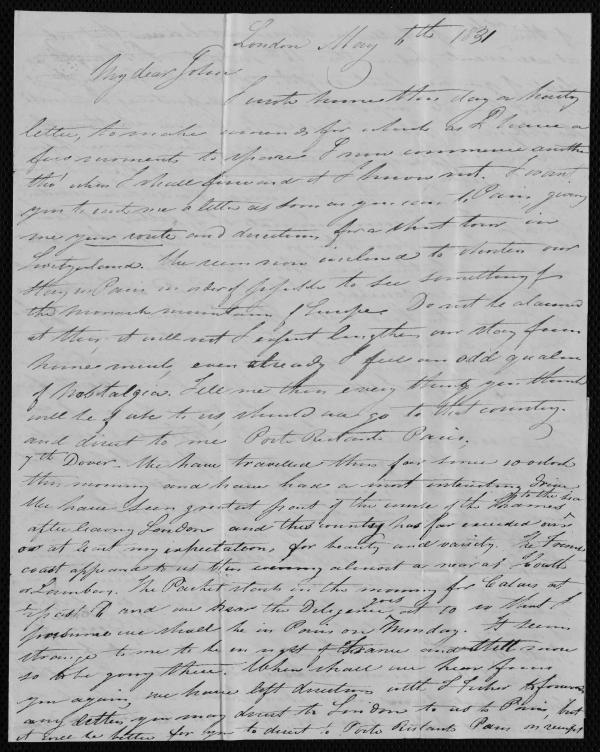 London May 6th 1831
My dear John
I wrote home this day a hasty
letter, to make amends for which as I have a
few moments to spare I now commence another
tho' when I shall forward it I know not. I want
you to write me a letter as soon as you can to Paris giving
me your route and directions for a short tour in
Switzerland. We seem now inclined to shorten our
stay in Paris in order if possible to see something of
the monarch mountains of Europe. Do not be alarmed
at this, it will not I expect lengthen our stay from
home much, even already I feel an odd qualm
of Nostalgia. Tell me then every thing you think
will be of use to us, should we go to that country.
and direct to me Poste Restante Paris.
7th Dover. We have travelled thus far since 10 oclock
this morning and have had a most interesting drive
We have seen great part of the course of the Thames to the sea
after leaving London and this country has far exceeded our
or at least my expectations for beauty and variety. The French
coast appeared to us this evening almost as near as South
The Packet starts in the morning for Calais at
past 6 and we hear the Deligence at 10 so that I
presume we shall be in Paris on Monday. It seems
strange to me to be in sight of France and still more
so to be going there. When shall we hear from
you again, we have left directions with to forward
any letters you may direct to London to us to Paris but
it will be better for you to direct to Poste Restante Paris